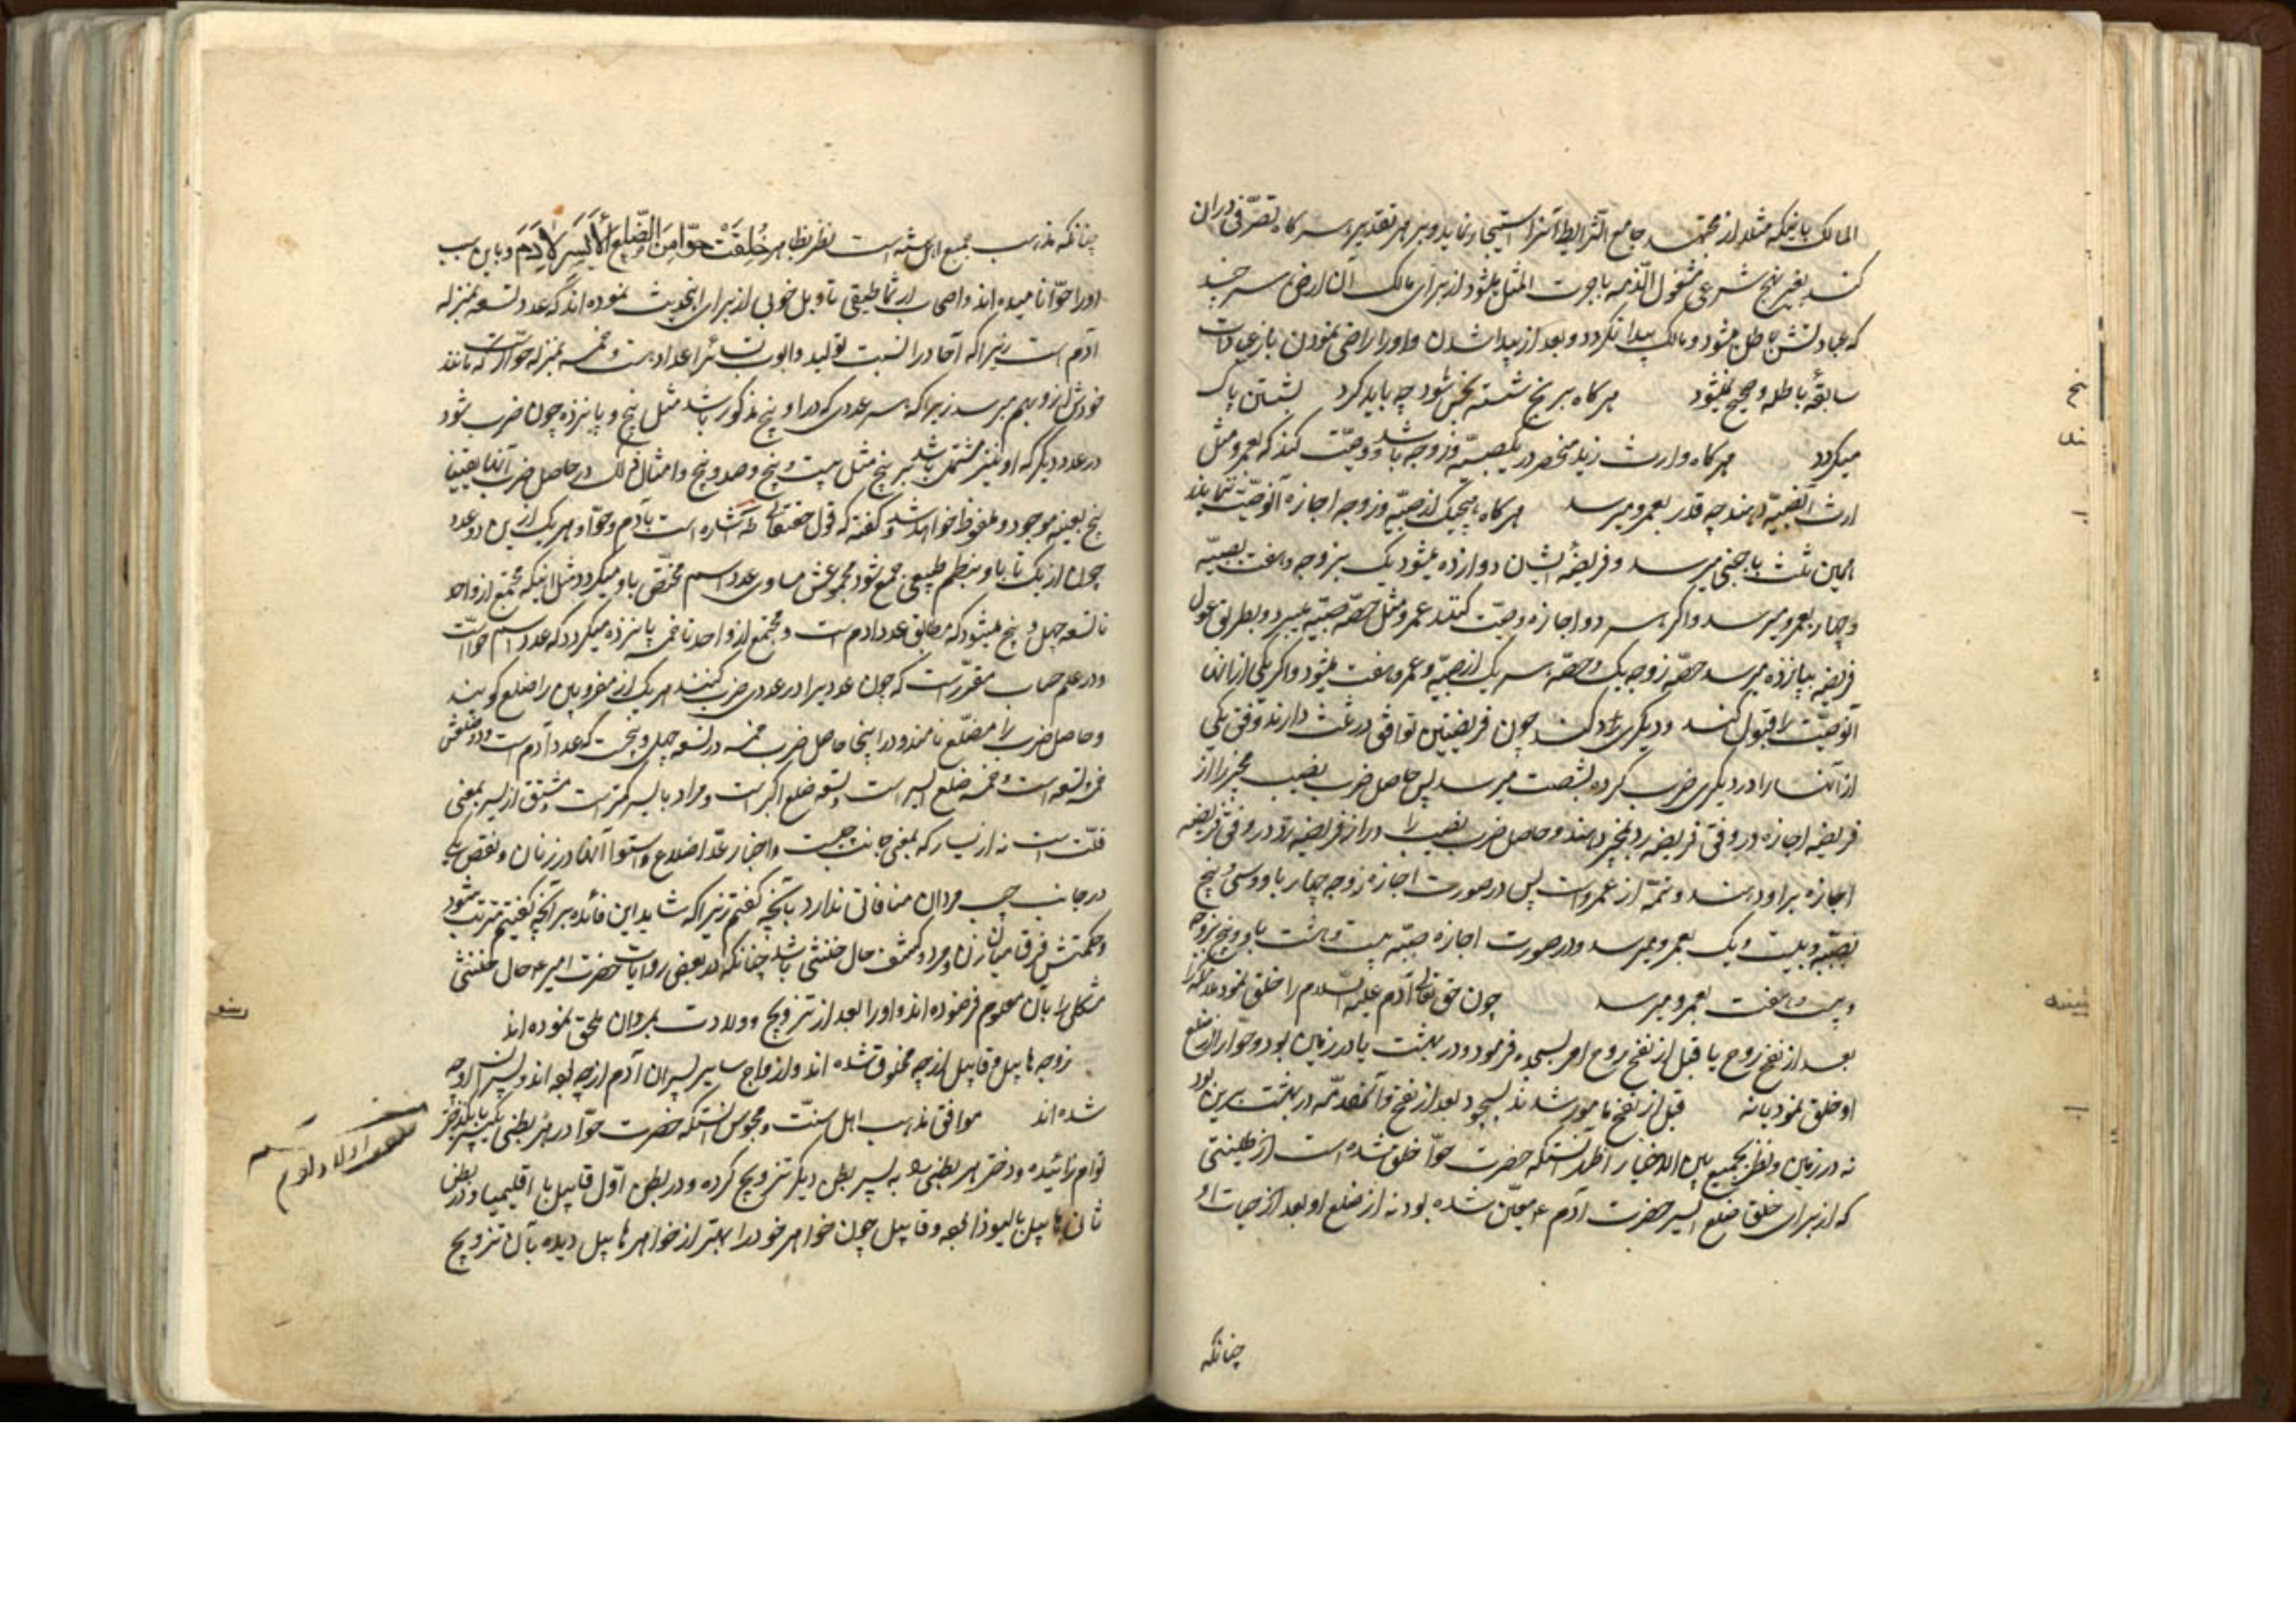 المالک باینکه مثلا از مجتهد جامع الشرایط آنرا استیجار نماید و بر هر تقدیر هر گاه تصرّفی دران
کند بغیر نهج شرعی مشغول الذمه باجرت المثل میشود از برای مالک آن ارض هر چند
که عبادتش باطل میشود و مالک پیدا نکردد و بعد از پیدا شدن و او را راضی نمودن باز عبادات
سابقهٔ باطله او صحیح نمیشود هر گاه برنج نشسته نجس شود چه باید کرد بشستن پاک
میکردد هر گاه وارث زید منحصر در یکصبیّه و زوجه باشد و وصیّت کند که بعمرو مثل
ارث آنصبیّه دهند چه قدر بعمرو میرسد هر گاه هیچیک از صبیّه و زوجه اجازه آنوصیّت ننمایند
همین ثلث باجنبی میرسد و فریضهٔ ایشان دوازده میشود یک بزوجه و هفت بصبیّه
و چهار بعمرو میرسد و اگر هر دو اجازه وصیّت کنند عمرو مثل حصّه صبیّه میبرد و بطریق عول
فریضه بپانزده میرسد حصّه زوجه یک و حصّه هر یک از صبیّه و عمرو هفت میشود و اگر یکی از ایشان
آنوصیّت را قبول کند و دیگری ردّ کند چون فریضتین توافق در ثلث دارند وفق یکی
از آنها را در دیگری ضرب کرده بشصت میرسد پس حاصل ضرب نصیب مجیز را از
فریضه اجازه در وفق فریضه رد بمجیز دهند و حاصل ضرب نصیب رادّ را از فریضه ردّ در وفق فریضه
اجازه براو دهند و تتمّه از عمرو است پس در صورت اجازه زوجه چهار باو و سی و پنج
بصبیّه و بیست و یک بعمرو میرسد و در صورت اجازه صبیّه بیست و هشت باو و پنج بزوجه
و بیست و هفت بعمرو میرسد چون حق تعالی آدم علیه السلام را خلق نمود
بعد از نفخ روح یا قبل از نفخ روح امر بسجده فرمود و در بهشت یا در زمین بود و حوّا را از ضلع
او خلق نمود یا نه قبل از نفخ مامور شدند بسجود بعد از نفخ و آنمقدّمه در بهشت برین بود
نه در زمین و نظر بجمیع بین الاخبار اظهر آنستکه حضرت حوّا خلق شده است از طینتی
که از برای خلق ضلع ایسر حضرت آدم ع معیّن شده بود نه از ضلع او بعد از حیات او
چنانکه
چنانکه مذهب جمیع اهل سنّت است نظر بظاهر خُلِقَتْ حوّا مِنَ الضّلعِ الأَیسَرِ لِآدَمَ و باین سبب
او را حوّا نامیده اند و اصحاب ارثماطیقی تاویل خوبی از برای اینحدیث نموده اند که عدد تسعه بمنزله
آدم است زیرا که آحاد را نسبت تولید و ابوت بسائر اعداد هست و خمسه بمنزله حوّا است که مانند
خودش ازو بهم میرسد زیرا که هر عددی که در او پنج مذکور باشد مثل پنج و پانزده چون ضرب شود
در عدد دیگر که او نیز مشتمل باشد بر پنج مثل بیست و پنج و صد و پنج و امثال ذلک در حاصل ضرب آنها یقینا
پنج بعینه موجود و ملفوظ خواهد شد و گفته که قول حقتعالی طه اشاره است بآدم و حوّا و هر یک ازین دو عدد
چون از یک تا باو بنظم طبیعی جمع شود مجموعش مساوی عدد اسم مختصّ باو میکردد مثل اینکه مجتمع از واحد
تا تسعه چهل و پنج میشود که مطابق عدد ادم است و مجتمع از واحد تا خمسه پانزده میکردد که عدد اسم حوّا است
و در علم حساب مقرّر است که چون عددیرا در عددی ضرب کنند هر یک از مضروبین را ضلع کویند
و حاصل ضرب را مضلّع نامند و در اینجا حاصل ضرب خمسه در تسعه چهل و پنجست که عدد آدم است و دو ضلعش
خمسه و تسعه است و خمسه ضلع ایسر است و تسعه ضلع اکبر است و مراد بایسر کمتر است و مشتق از یسر بمعنی
قلّت است نه از یسار که بمعنی جانب چپست و اخبار عدّ اضلاع و استواء آنها در زنان و نقص یکی
در جانب چپ مردان منافاتی ندارد بآنچه گفتم زیرا که شاید این فائده بر آنچه گفتیم مترتب شود
و حکمتش فرق میان زن و مرد و کشف حال خنثی باشد چنانکه در بعضی روایات حضرت امیر ع حال خنثی
مشکل را بآن معلوم فرموده اند و او را بعد از تزویج و ولادت بمردان ملحق نموده اند
زوجه هابیل و قابیل از چه مخلوق شده اند و ازواج سایر پسران آدم از چه بهم اند و پسران از چه
شده اند موافق مذهب اهل سنّت و مجوس آنستکه حضرت حوّا در هر بطنی یک پسر با یکدختر
توام زائیده و دختر هر بطنی را به پسر بطن دیگر تزویج کرده و در بطن اوّل قابیل با اقلیمیا و در بطن
ثانی هابیل با لیوذا بهم و قابیل چون خواهر خود را بهتر از خواهر هابیل دیده بآن تزویج
اولاد آدم